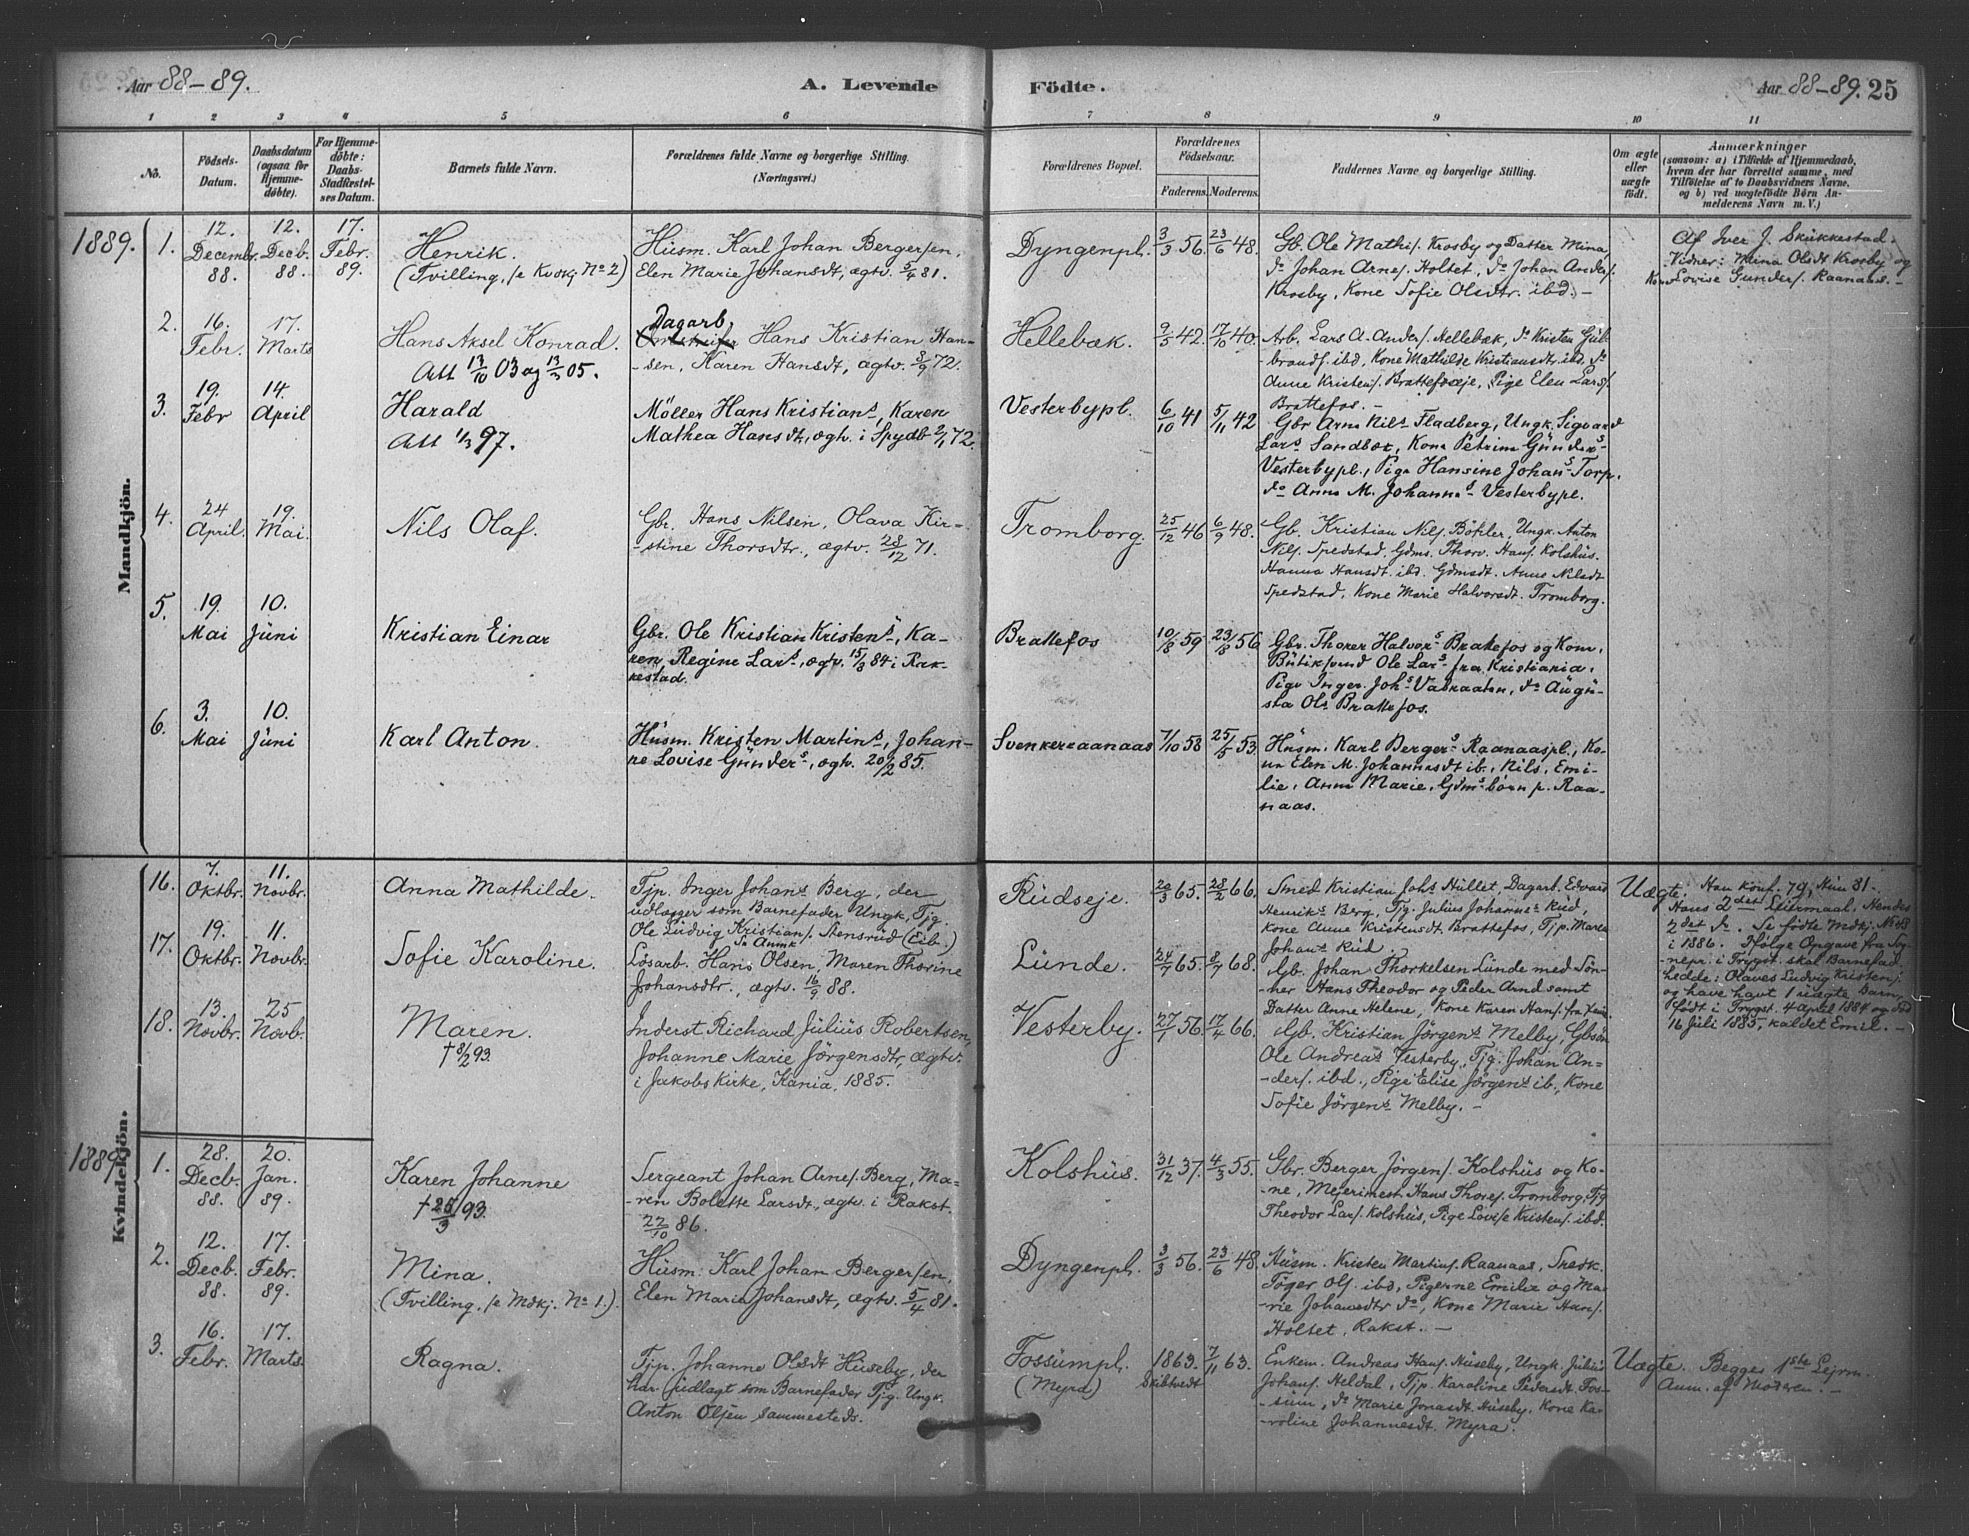 Aar 88-89.
A. Levende
Födte.
Aar 88-89. 25
1 2 3 4 5 6 7 8 9 10 11
No.
Födsels-
Datum.
Daabsdatum
(ogsaa for
Hjemme-
döbte).
For Hjemme-
döbte:
Daabs-
Stadfæstel-
ses Datum.
Barnets fulde Navn.
Forældrenes fulde Navne og borgerlige Stilling.
(Næringsvei.)
Forældrenes Bopæl.
Forældrenes
Födselsaar.
Faderens. Moderens.
Faddernes Navne og borgerlige Stilling.
Om ægte
eller
uægte
født.
Anmærkninger
(saasom: a) i Tilfælde af Hjemmedaab,
hvem der har forrettet samme, med
Tilföielse af to Daabsvidners Navne,
og b) ved uægtefödte Börn An-
melderens Navn m. V.)
Mandkjön.
1889.
1.
12.
Decembr.
88.
12.
Decb.
88.
17.
Febr.
89.
Henrik.
(Tvilling, se Kvdkj. No 2)
Husm. Karl Johan Bergersen,
Elen Marie Johansdt, ægtv. 5/4 81.
Dyngenpl.
3/3 56.
23/6 48.
Gb. Ole Mathis. Krosby og Datter Mina
do Johan Arnes. Holtet, do Johan Anders.
Krosby, Kone Sofie Olsdtr. ibd. -
Af Iver J. Skukkestad.
Vidner: Mina Olsdt Krosby og
Kone Lovise Gunders. Raanaas. -
2.
16.
Febr.
17.
Marts
Hans Aksel Konrad.
Att 13/10 03 og 13/3 05.
Dagarb.
Hans Kristian Han-
-sen, Karen Hansdt, ægtv. 3/9 72.
Hellebæk.
9/5 42.
17/10 40.
Arb. Lars A. Anders. Hellebæk, do Kristen Gul-
brands. ibd, Kone Mathilde Kristiansdt. ibd. do
Anne Kristens. Brattefoseje, Pige Elen Lars.
Brattefos. -
3.
19.
Febr
14.
April
Harald
Att 1/3 97.
Möller Hans Kristians., Karen
Mathea Hansdt, ægtv. i Spydb 2/1 72.
Vesterbypl.
6/10 41
5/11 42
Gbr Arne Nils. Fladberg, Ungk. Sigvard
Lars. Sandbæk, Kone Petrine Gunders.
Vesterbypl., Pige Hansine Johans. Torp.
do Anna M. Johanns. Vesterbypl.
4.
24
April.
19.
Mai.
Nils Olaf.
Gbr. Hans Nilsen, Olava Kir-
-stine Thorsdtr., ægtv. 28/12 71.
Tromborg.
25/12 46
6/9 48.
Gb. Kristian Nils. Böhler, Ungk. Anton
Nils. Spedstad. Gdms. Thorv. Hans. Kolshus.
Hanna Hansdt. ibd. Gdmsdt. Anne Nilsdt
Spedstad, Kone Marie Halvorsdt. Tromborg.
5.
19.
Mai
10.
Juni
Kristian Einar
Gbr. Ole Kristian Kristens., Ka-
ren Regine Lars., ægtv. 15/3 84 i Rak-
kestad.
Brattefos
10/8 59
23/8 56
Gbr. Thorer Halvors. Brattefos og Kone,
Butiksvend Ole Lars. fra Kristiania.
Pige Inger Johs. Vatvaaten, do Augu-
sta Ols. Brattefos.
6.
3.
Mai
10.
Juni
Karl Anton.
Husm. Kristen Martins., Johan-
ne Lovise Gunders., ægtv. 20/2 85.
Svenkeraanaas
7/10 58
25/5 53.
Husm. Karl Bergers. Raanaaspl., Ko-
ne Elen M. Johannesdt ib., Nils, Emi-
lie, Anne Marie, Gdms. börn p. Raa-
naas.
Kvindekjön.
16.
7.
Oktbr.
11.
Novbr.
Anna Mathilde.
Tjp. Inger Johans. Berg, der
udlægger som Barnefader Ungk. Tjg.
Ole Ludvig Kristians. Stensrud (Eib.)
Se Anmk
Rudseje.
20/3 65.
28/2 66.
Smed Kristian Johs Hullet, Dagarb. Edvard
Henriks. Berg, Tjg. Julius Johanns. Rud,
Kone Anne Kristensdt. Brattefos, Tjp. Maren
Johans. Rud.
Uægte.
Han konf. 79, Hun 81.
Hans 2det Leiermaal. Hendes
2det do. Se födte Mdkj. No 48
i 1886. Ifölge Opgave fra Sog-
nepr. i Trygst. skal Barnefad.
hedde: Olaves Ludvig Kristens.
og have havt 1 uægte Barn,
født i Trygst. 4 April 1884 og död
16 Juli 1885, kaldet Emil. -
17.
19.
Oktbr.
11.
Novbr.
Sofie Karoline.
Lösarb. Hans Olsen, Maren Thorine
Johansdtr., ægtv. 16/9 88.
Lunde.
24/7 65.
8/7 68.
Gb. Johan Thorkelsen Lunde med Sön-
ner Hans Theodor og Peder Arnd samt
Datter Anne Helene, Kone Karen Hans. fra
18.
13.
Novbr.
25
Novb.
Maren.
† 8/2 93.
Inderst Richard Julius Robertsen,
Johanne Marie Jörgensdtr, ægtv.
i Jakobs Kirke, Kania, 1885.
Vesterby.
27/1 56.
17/4 66.
Gb. Kristian Jörgens. Melby, Gbsön
Ole Andreas. Vesterby, Tjg. Johan An-
-ders. ibd., Pige Elise Jörgens. ib, Kone
Sofie Jörgens. Melby. -
1889
1.
28.
Decb.
88.
20.
Jan.
89.
Karen Johanne
† 25/3 93.
Sergeant Johan Arnes. Berg, Ma-
-ren Bolette Larsdt., ægtv. i Rakst.
22/10 86.
Kolshus.
31/12 37.
4/3 55.
Gbr. Berger Jörgens. Kolshus og Ko-
ne, Mejerimest. Hans Thores. Tromborg, Tjg
Theodor Lars. Kolshus, Pige Lovise Kristens. ibd.
2.
12.
Decb.
88.
17.
Febr.
89.
Mina.
(Tvilling, se Mdkj. No 1.)
Husm. Karl Johan Bergersen,
Elen Marie Johansdt, ægtv. 5/4 81.
Dyngenpl.
3/3 56.
23/6 48.
Husm. Kristen Martins. Raanaas, Snedk.
Töger Ols. ibd, Pigerne Emilie og Ma-
rie Johansdtr do, Kone Marie Hans.
Holtet, Rakst. -
3.
16.
Febr.
17.
Marts.
Ragna.
Tjp. Johanne Olsdt Huseby, der
har udlagt som Barnefader Tjg. Ungk.
Anton Olsen sammesteds.
Fossumpl.
(Myra)
1863.
Skibtvedt
7/11 63.
Enkem. Andreas Hans. Huseby, Ungk. Julius
Johans. Heldal, Tjp. Karoline Pedersdt. Fos-
-sum, do Marie Jonasdt. Huseby, Kone Ka-
-roline Johannesdt. Myra.
Uægte.
Begges 1ste Lejrm.
Anm. af Moderen. -